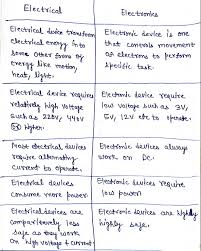 Electrical
Electronics
Electrical device transform
electrical energy into
some other form of
energy like motion,
heat, light.
Electronic device is one
that controls movement
of electrons to perform
specific task.
Electrical device requires
relatively high voltage
such as 220V, 440V
Higher.
Electronic device require
low voltage such as 3V,
5V, 12V etc to operate.
Most electrical devices
require alternating
current to operate.
Electronic devices always
work on DC.
Electrical devices
consume more power.
Electronic devices require
low power.
Electrical devices are
comparitevely less
safe as they work
on high voltage & current
Electronic devices are highly
safe.